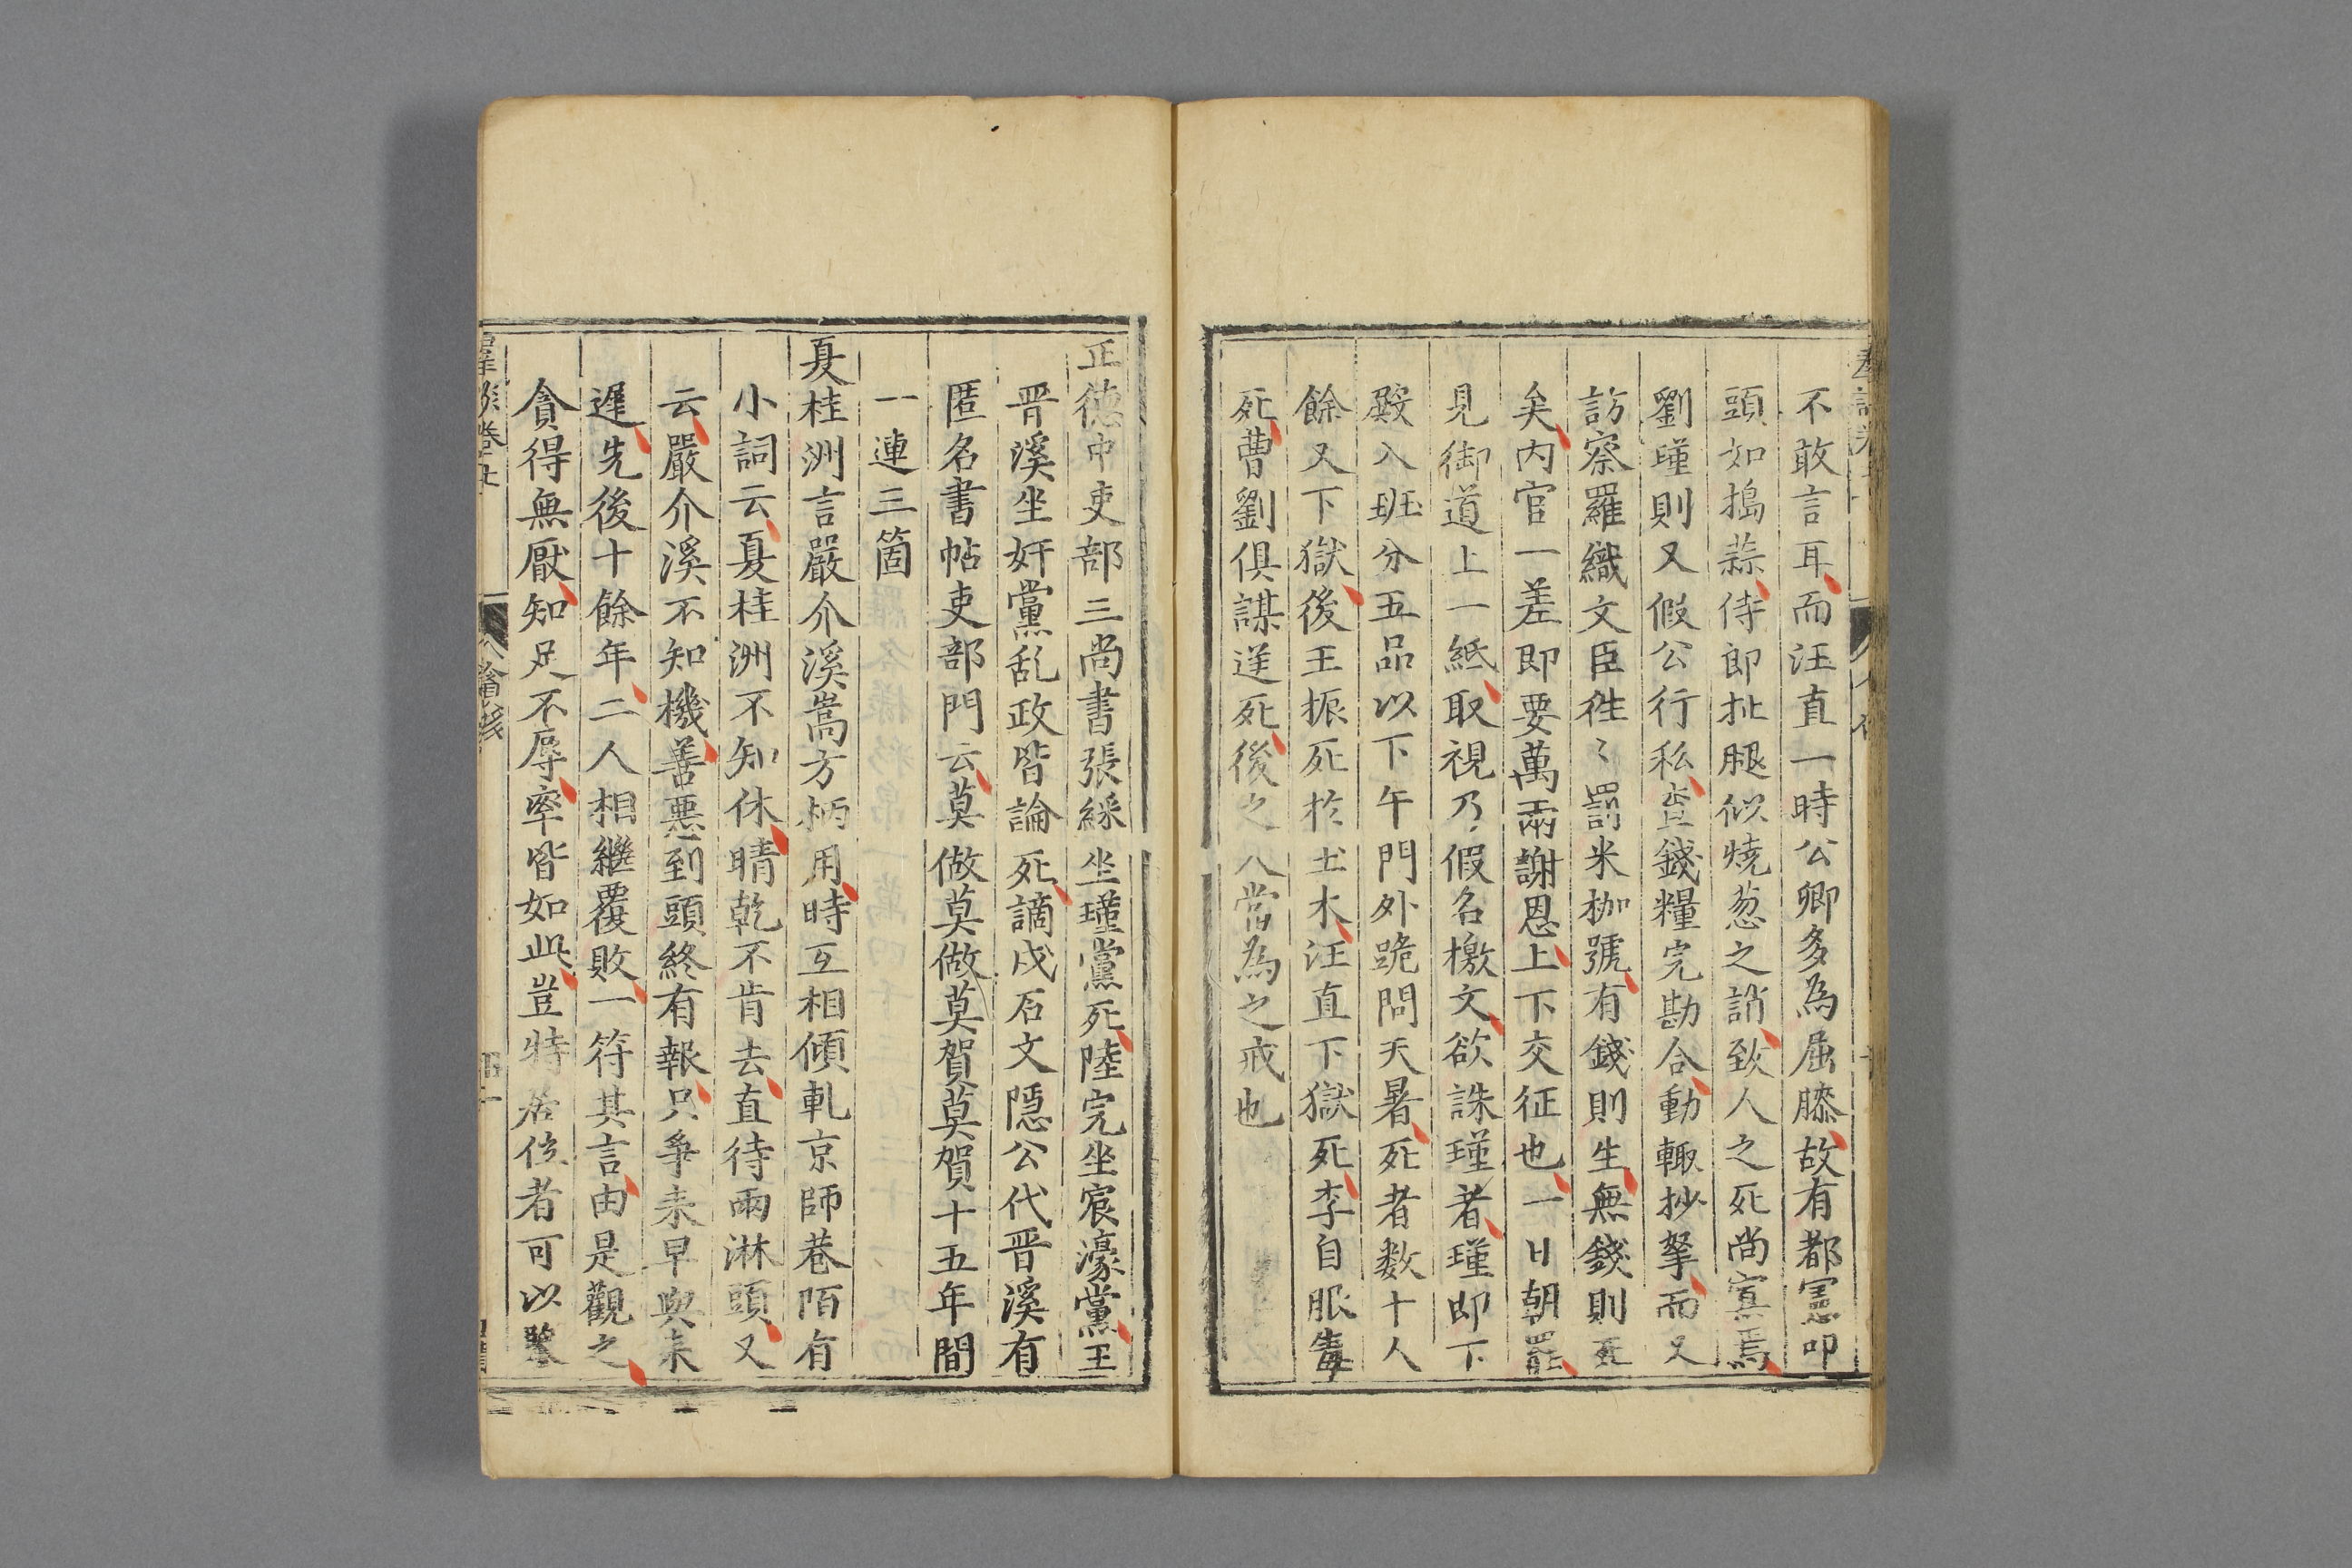 不敢言耳而汪直一時公卿多為屈膝故有都憲叩
頭如搗蒜侍郎扯腿似燒葱之誚致人之死尚寡焉
劉瑾則又假公行私查錢糧完勘合動輙抄拏而又
訪察羅織文臣徃〻罰米枷號有錢則生無錢則死
矣内官一差即要萬兩謝恩上下交征也一日朝罷
見御道上一紙取視乃假名檄文欲誅瑾者瑾即下
殿入班分五品以下午門外跪問天暑死者数十人
餘又下獄後王振死於土木汪直下獄死李自服毒
死曹劉俱謀逆死後之人當為之戒也
正德中吏部三尚書張綵坐瑾黨死陸完坐宸濠黨王
晋溪坐奸黨乱政皆論死謫戍石文隱公代晋溪有
匿名書帖吏部門云莫做莫做莫賀莫賀十五年間
一連三箇
夏桂洲言嚴介溪嵩方柄用時互相傾軋京師巷陌有
小詞云夏桂洲不知休晴乾不肯去直待雨淋頭又
云嚴介溪不知機善悪到頭終有報只爭来早與来
遲先後十餘年二人相繼覆敗一符其言由是觀之
貪得無厭知足不辱率皆如此豈特居位者可以鑒